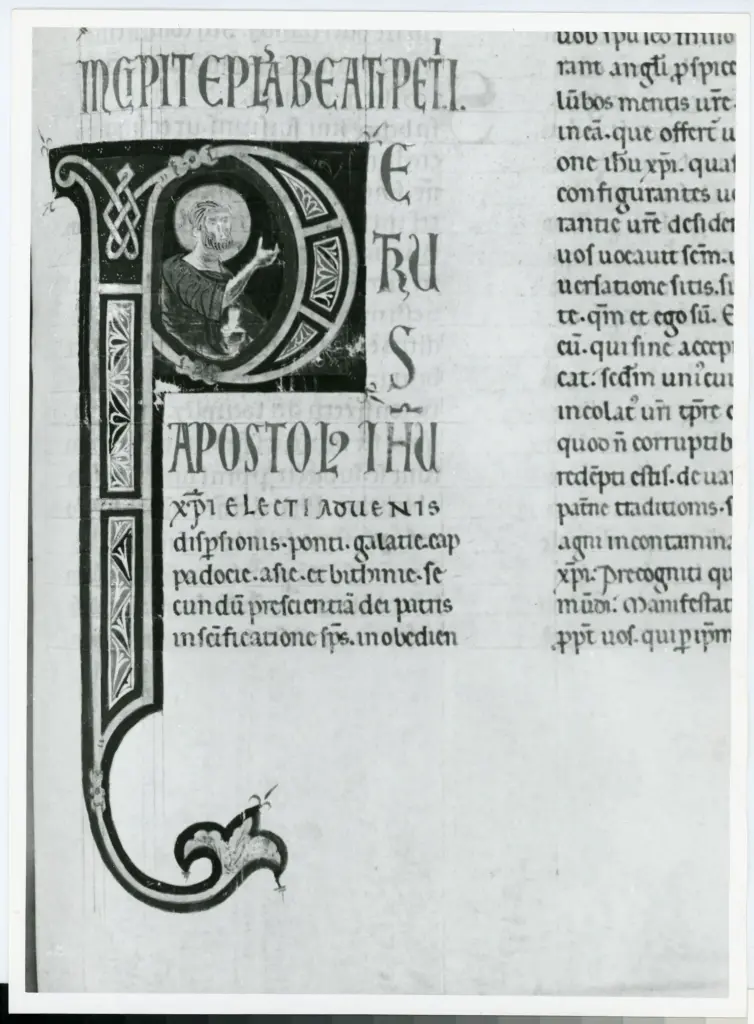 INCIPIT EPLA BEATI PETI.
PE
TRU
S
APOSTOL9 IHU
XPI ELECTI ADUENIS
dispsionis. ponti. galatie. cap
padocie. asie. et bithinie. se
cundu prescientia dei patris
in scificatione sps. in obedien
rant angli pspice
lubos mentis ure.
in ea. que offert u
one ihu xpi. quas
configurantes u
rantie ure desider
uos uocauit scm. u
uersatione sitis. si
te. qm et ego su. E
eu. qui sine accep
cat. secdm uni cui
incolat uri tpre c
quod n corruptib
redepti estis. de ua
patne traditionis. s
agni incontamina
xpi. Precogniti qu
mudi. Manifestat
ppt uos. qui p ipm